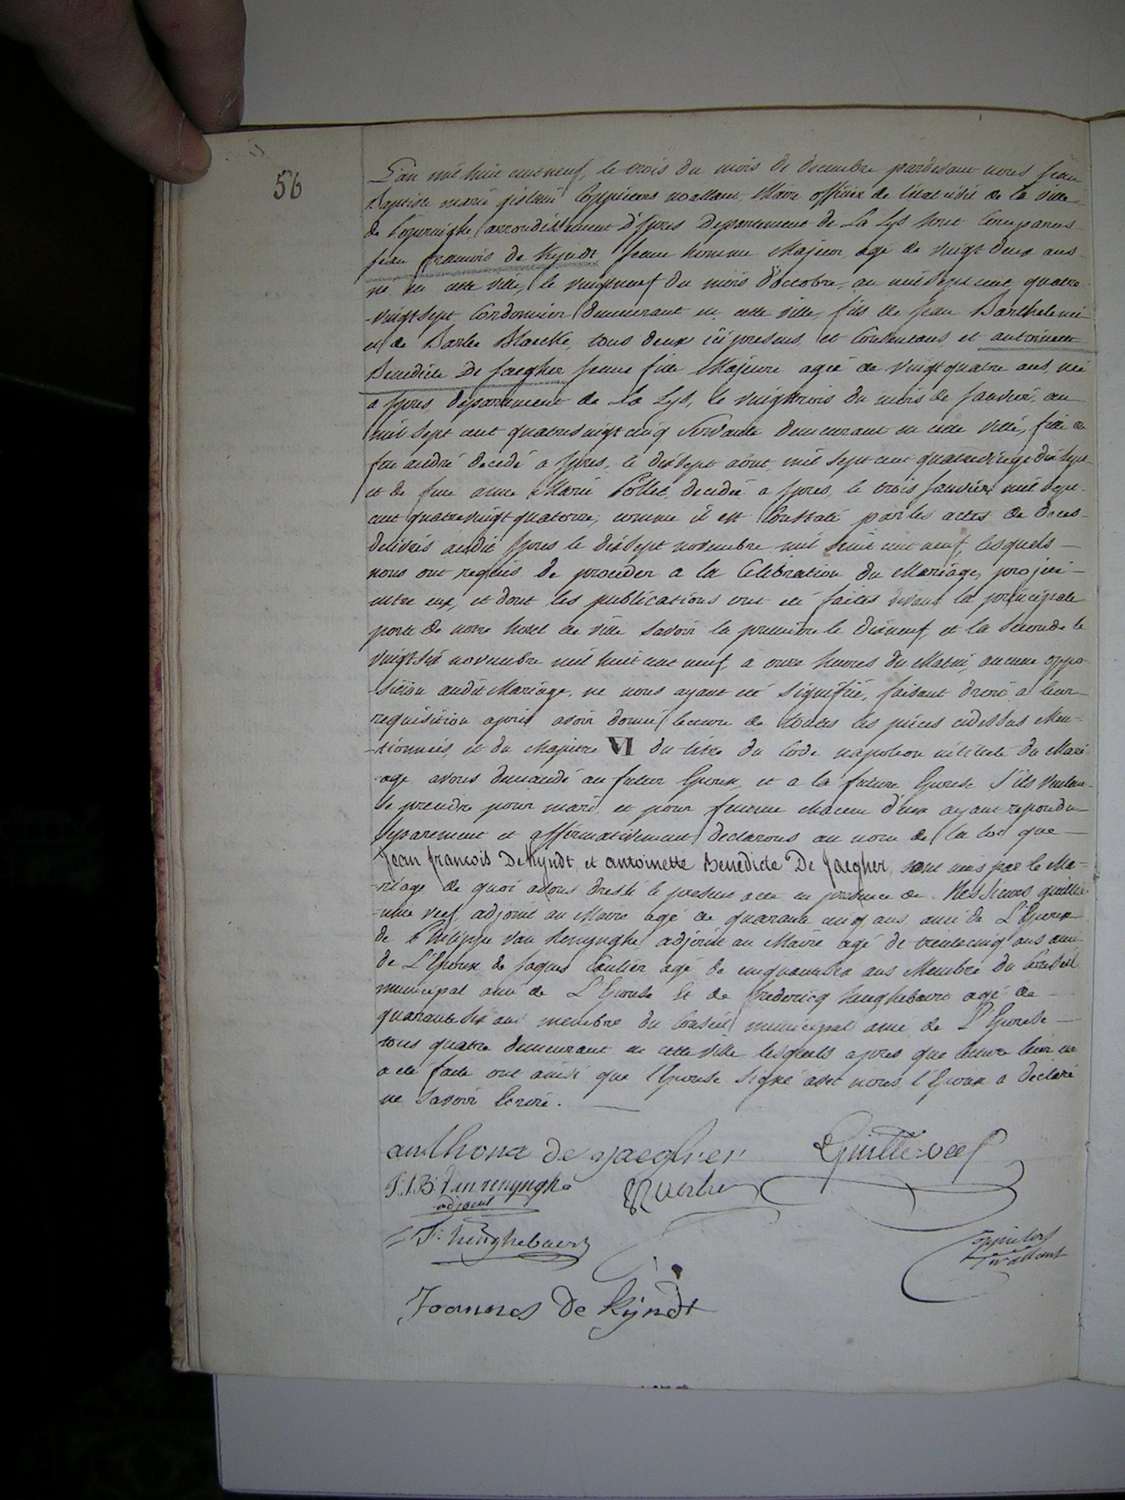 56
L'an mil huit cent neuf, le trois du mois de decembre pardevant nous Jean
Baptiste marie gislain Coppieters wallant Maire officier de l'etat civil de la ville
de Poperinghe, arrondissement d'Ypres Departement de La Lys sont Comparus
Jean francois de Kyndt jeune homme Majeur agé de vingt deux ans
né en cette ville, le vingtneuf du mois d'octobre, an mil sept cent quatre
vingt sept Cordonnier demeurant en cette ville, fils de Jean Barthelemi
et de Barbe Blaecke, tous deux ici presens et Consentans et antoinette
Benedicte De Jaegher jeune fille Majeure agée de vingt quatre ans, née
a Ypres, departement de La Lys, le vingttrois du mois de Janvier, an
mil sept cent quatrevingt cinq Servante demeurant en cette ville, fille de
feu andré decedé a Ypres, le dixsept aout mil sept cent quatrevingt dix sept
et de feue anne Marie Pollet, decedée a Ypres le trois Janvier mil sept
cent quatrevingt quatorze, comme il est Constaté par les actes de deces
delivrés audit Ypres le dixsept novembre mil huit cent neuf, lesquels
nous ont requis de proceder a la Celebration du Mariage, projetté
entre eux, et dont les publications ont été faites devant la principale
porte de notre hotel de ville Savoir la premiere le dixneuf, et la seconde le
vingt six novembre mil huit cent neuf, a onze heures du Matin, aucune oppo-
sition audit Mariage, ne nous ayant été Signifiée, faisant droit a leur
requisition apres avoir donné lecture de toutes les pièces cidessus Men-
tionnées, et du chapitre VI du titre du Code napoleon intitulé du Mari-
age avons demandé au futur Epoux, et a la future Epouse S'ils veulent
Se prendre pour mari et pour femme chacun d'eux ayant repondu
Separement et affirmativement, declarons au nom de la loi que
Jean francois De Kyndt, et antoinette Benedicte De Jaegher, sont unis par le Ma-
riage de quoi avons dressé le present acte en presence de Messieurs guilla-
ume veef, adjoint au Maire agé de quarante cinq ans, ami de L'Epoux
de Philippe Van Renynghe, adjoint au Maire agé de trentecinq ans ami
de L'Epoux, de Jaques agé de ans Membre du Conseil
municipal ami de L'Epouse et de fredericq hinghebaere agé de
quarante six ans membre du Conseil municipal ami de L'Epouse
tous quatre demeurant en cette ville lesquels apres que lecture leur en
a été faite ont ainsi que l'Epouse Signé avec nous, l'Epoux a declaré
ne savoir Ecrire.
anthona de jaegher Guille: veef
Van renynghe
adjoint
hinghebaere
Coppieters
Wallant
Joannes De Kijndt